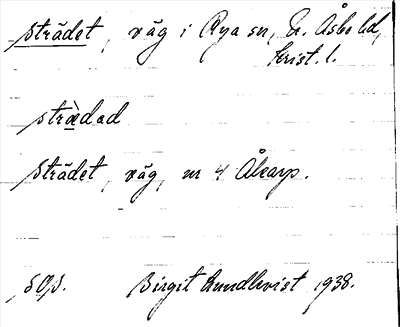 Strädet, väg i Rya sn, N. Åsbo hd,
Krist. l.
strä̀dad
Strädet, väg, nr 4 Åkarp.
SOS. Birgit Lundkvist 1938.